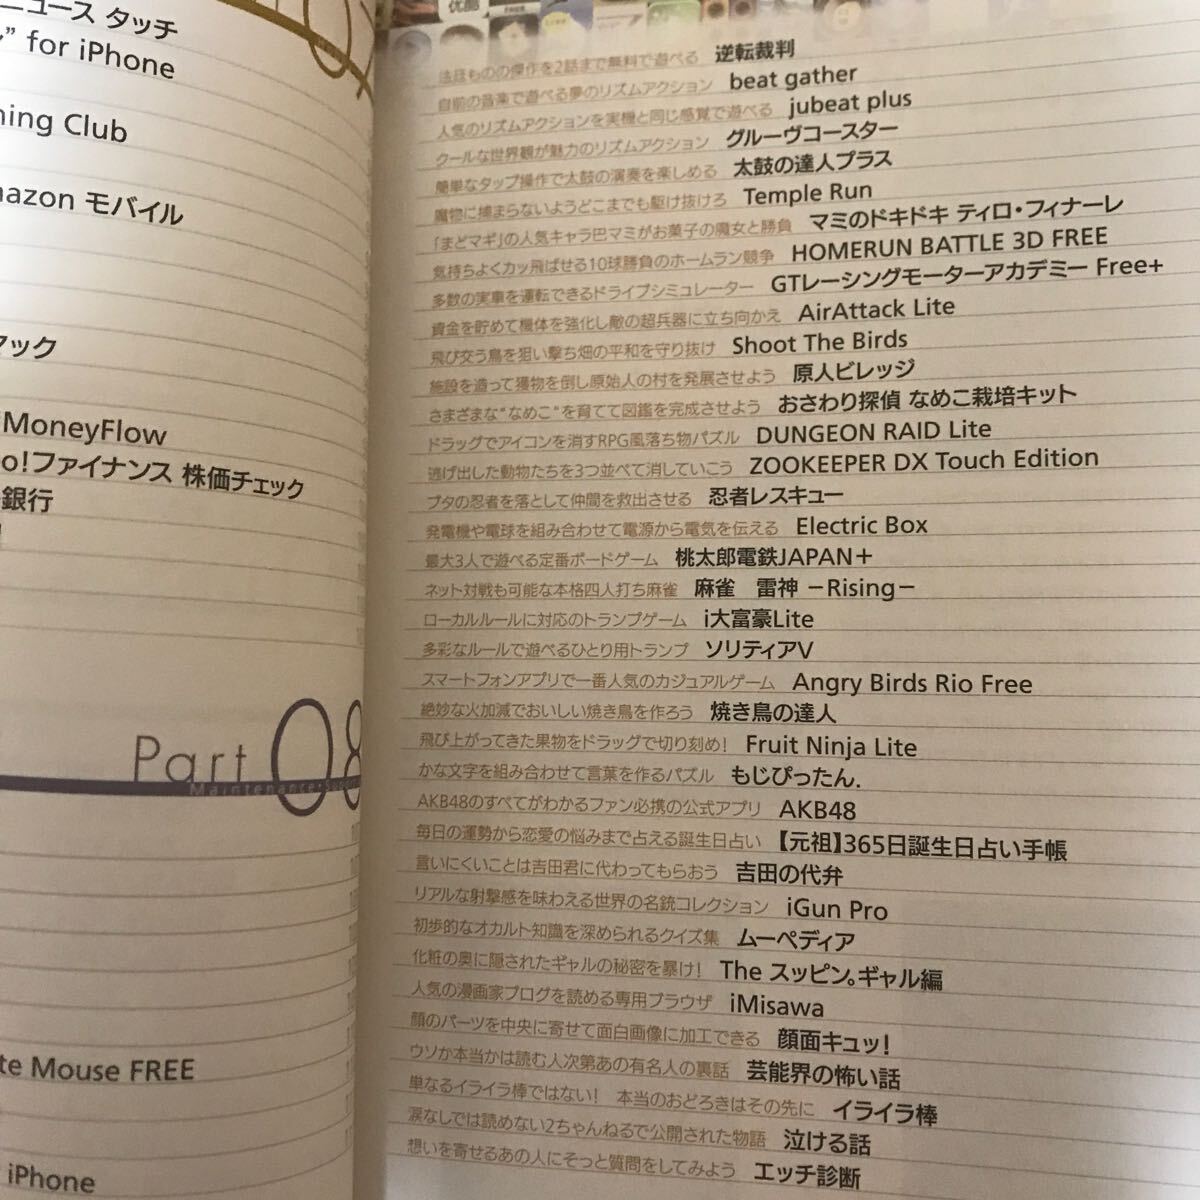 ニュース タッチ
for iPhone
ning Club
mazon モバイル
マック
MoneyFlow
oo!ファイナンス 株価チェック
銀行
Part 08
te Mouse FREE
iPhone
法廷ものの傑作を2話まで無料で遊べる 逆転裁判
自前の音楽で遊べる夢のリズムアクション beat gather
人気のリズムアクションを実機と同じ感覚で遊べる jubeat plus
クールな世界観が魅力のリズムアクション グルーヴコースター
簡単なタップ操作で太鼓の演奏を楽しめる 太鼓の達人プラス
魔物に捕まらないようどこまでも駆け抜けろ Temple Run
「まどマギ」の人気キャラ巴マミがお菓子の魔女と勝負 マミのドキドキ ティロ・フィナーレ
気持ちよくカッ飛ばせる10球勝負のホームラン競争 HOMERUN BATTLE 3D FREE
多数の実車を運転できるドライブシミュレーター GTレーシングモーターアカデミー Free+
資金を貯めて機体を強化し敵の超兵器に立ち向かえ AirAttack Lite
飛び交う鳥を狙い撃ち畑の平和を守り抜け Shoot The Birds
施設を造って獲物を倒し原始人の村を発展させよう 原人ビレッジ
さまざまな“なめこ”を育てて図鑑を完成させよう おさわり探偵 なめこ栽培キット
ドラッグでアイコンを消すRPG風落ち物パズル DUNGEON RAID Lite
逃げ出した動物たちを3つ並べて消していこう ZOOKEEPER DX Touch Edition
ブタの忍者を落として仲間を救出させる 忍者レスキュー
発電機や電球を組み合わせて電源から電気を伝える Electric Box
最大3人で遊べる定番ボードゲーム 桃太郎電鉄JAPAN＋
ネット対戦も可能な本格四人打ち麻雀 麻雀　雷神 －Rising－
ローカルルールに対応のトランプゲーム i大富豪Lite
多彩なルールで遊べるひとり用トランプ ソリティアV
スマートフォンアプリで一番人気のカジュアルゲーム Angry Birds Rio Free
絶妙な火加減でおいしい焼き鳥を作ろう 焼き鳥の達人
飛び上がってきた果物をドラッグで切り刻め! Fruit Ninja Lite
かな文字を組み合わせて言葉を作るパズル もじぴったん.
AKB48のすべてがわかるファン必携の公式アプリ AKB48
毎日の運勢から恋愛の悩みまで占える誕生日占い 【元祖】365日誕生日占い手帳
言いにくいことは吉田君に代わってもらおう 吉田の代弁
リアルな射撃感を味わえる世界の名銃コレクション iGun Pro
初歩的なオカルト知識を深められるクイズ集 ムーペディア
化粧の奥に隠されたギャルの秘密を暴け! The スッピン。ギャル編
人気の漫画家ブログを読める専用ブラウザ iMisawa
顔のパーツを中央に寄せて面白画像に加工できる 顔面キュッ!
ウソか本当かは読む人次第あの有名人の裏話 芸能界の怖い話
単なるイライラ棒ではない! 本当のおどろきはその先に イライラ棒
涙なしでは読めない2ちゃんねるで公開された物語 泣ける話
想いを寄せるあの人にそっと質問をしてみよう エッチ診断